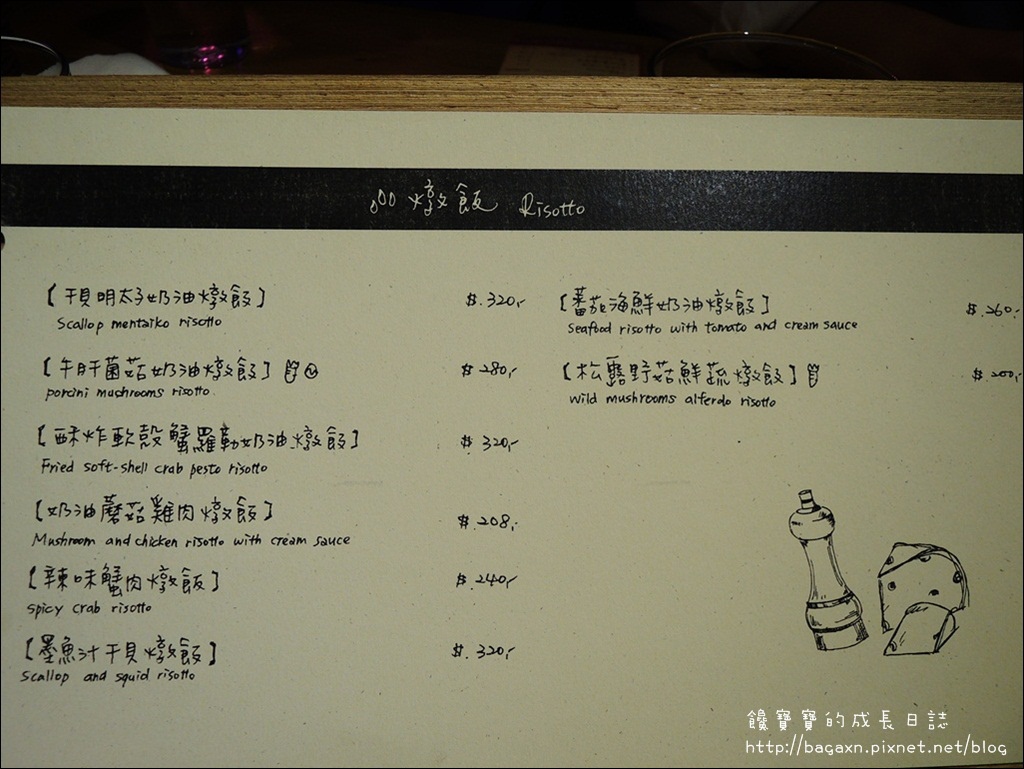 燉飯 Risotto
【干貝明太子奶油燉飯】 $.320,-
Scallop mentaiko risotto
【牛肝菌菇奶油燉飯】 $.280,-
porcini mushrooms risotto
【酥炸軟殼蟹羅勒奶油燉飯】 $.320,-
Fried soft-shell crab pesto risotto
【奶油蘑菇雞肉燉飯】 $.208,-
Mushroom and chicken risotto with cream sauce
【辣味蟹肉燉飯】 $.240,-
spicy crab risotto
【墨魚汁干貝燉飯】 $.320,-
Scallop and squid risotto
【蕃茄海鮮奶油燉飯】 $.260,-
Seafood risotto with tomato and cream sauce
【松露野菇鮮蔬燉飯】 $.200,-
wild mushrooms alferdo risotto
饞寶寶的成長日誌
http://bagaxn.pixnet.net/blog